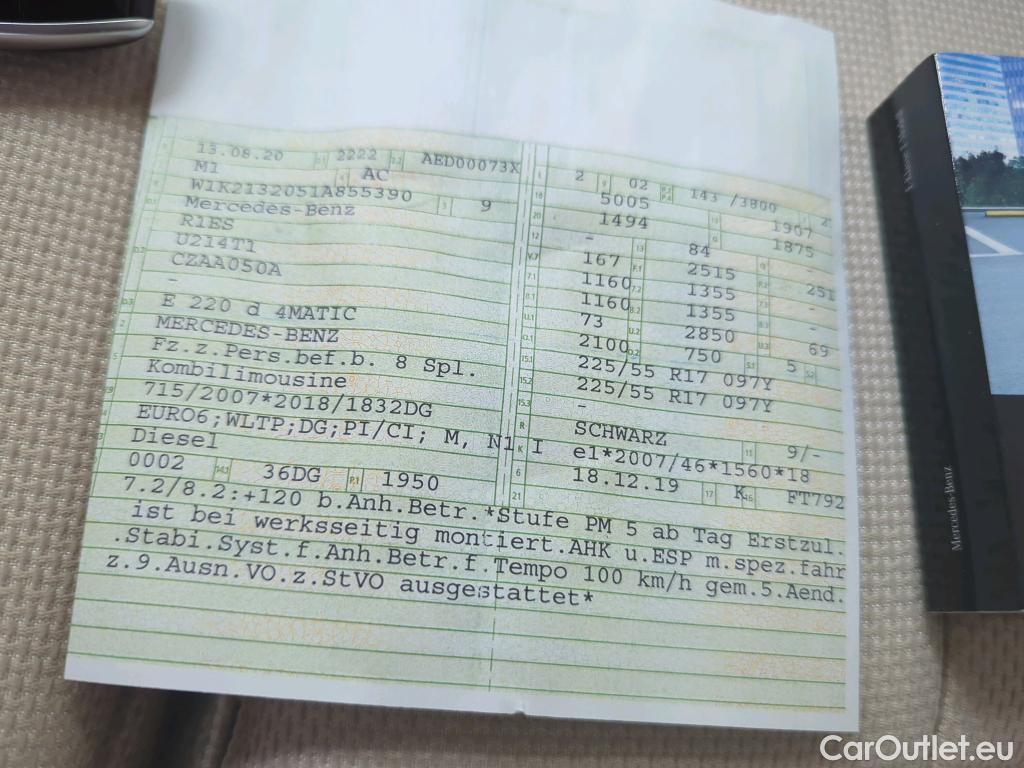 13.08.20 2.1 2222 2.2 AED00073X
M1 AC
W1K2132051A855390 3 9
Mercedes-Benz
R1ES
U214T1
CZAA050A
-
E 220 d 4MATIC
MERCEDES-BENZ
Fz.z.Pers.bef.b. 8 Spl.
Kombilimousine
715/2007*2018/1832DG
EURO6;WLTP;DG;PI/CI; M, N1 I
Diesel
0002 14.1 36DG P.1 1950
L 2 9 02 P.2 P.4 143 /3800 2
18 5005 19 1907
20 1494 G 1875
12 - 13 84 -
V.7 167 F.1 2515 F.2 251
7.1 1160 7.2 1355 7.3 -
8.1 1160 8.2 1355 8.3 -
U.1 73 U.2 2850 U.3 69
O.1 2100 O.2 750 S.1 5 S.2
15.1 225/55 R17 097Y
15.2 225/55 R17 097Y
15.3 -
R SCHWARZ 11 9/-
K e1*2007/46*1560*18
6 18.12.19 17 K 16 FT792
21
7.2/8.2:+120 b.Anh.Betr.*Stufe PM 5 ab Tag Erstzul.
ist bei werksseitig montiert.AHK u.ESP m.spez.fahr
.Stabi.Syst.f.Anh.Betr.f.Tempo 100 km/h gem.5.Aend.
z.9.Ausn.VO.z.StVO ausgestattet*
Mercedes-Benz
CarOutlet.eu